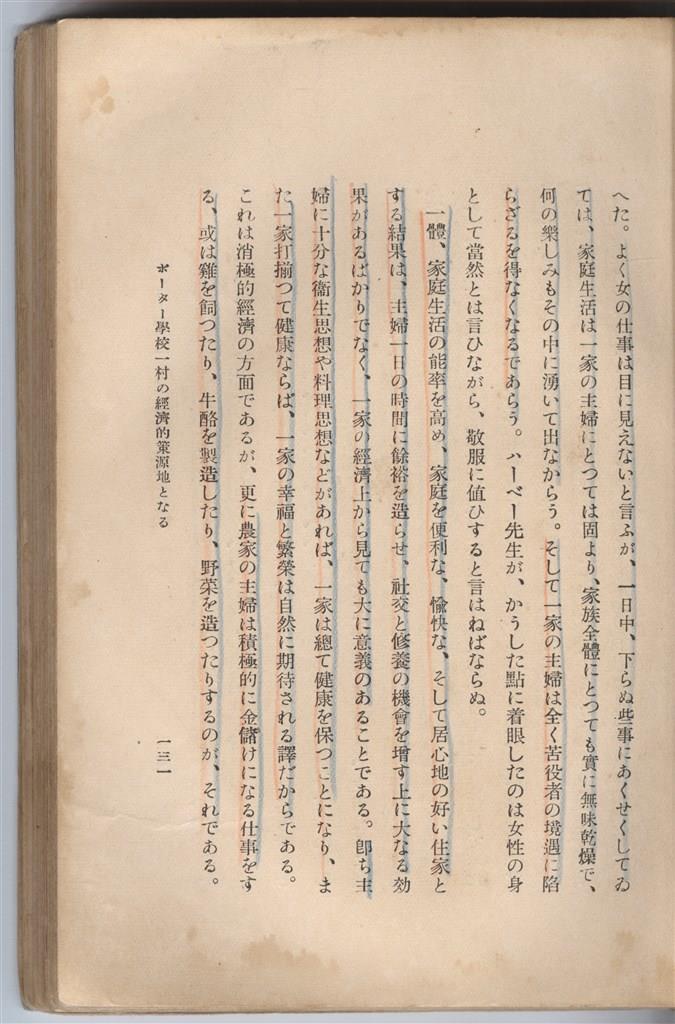 へた。よく女の仕事は目に見えないと言ふが、一日中、下らぬ些事にあくせくしてゐ
ては、家庭生活は一家の主婦にとつては固より、家族全體にとつても實に無味乾燥で、
何の樂しみもその中に湧いて出なからう。そして一家の主婦は全く苦役者の境遇に陷
らざるを得なくなるであらう。ハーベー先生が、かうした點に着眼したのは女性の身
として當然とは言ひながら、敬服に値ひすると言はねばならぬ。
一體、家庭生活の能率を高め、家庭を便利な、愉快な、そして居心地の好い住家と
する結果は、主婦一日の時間に餘裕を造らせ、社交と修養の機會を增す上に大なる効
果があるばかりでなく、一家の經濟上から見ても大に意義のあることである。卽ち主
婦に十分な衞生思想や料理思想などがあれば、一家は總て健康を保つことになり、ま
た一家打揃つて健康ならば、一家の幸福と繁榮は自然に期待される譯だからである。
これは消極的經濟の方面であるが、更に農家の主婦は積極的に金儲けになる仕事をす
る、或は雞を飼つたり、牛酪を製造したり、野菜を造つたりするのが、それである。
ポーター學校一村の經濟的策源地となる
一三一